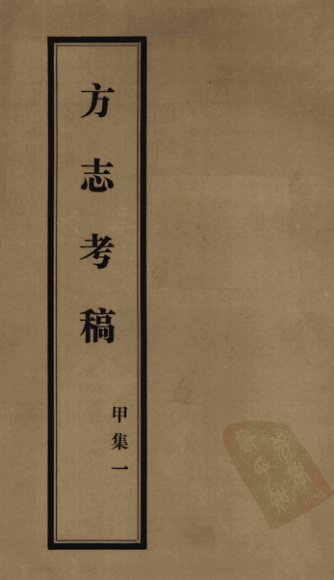 方志考稿
甲集一